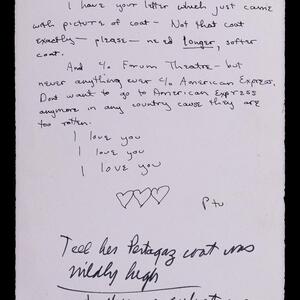 I have your letter which just came
with picture of coat - Not that coat
exactly - please - need longer, softer
coat.
And c/o Forum Theatre - but
never anything ever c/o American Express.
Dont want to go to American Express
anymore in any country cause they are
too rotten.
I love you
I love you
I love you
Tell her coat was
mildly high